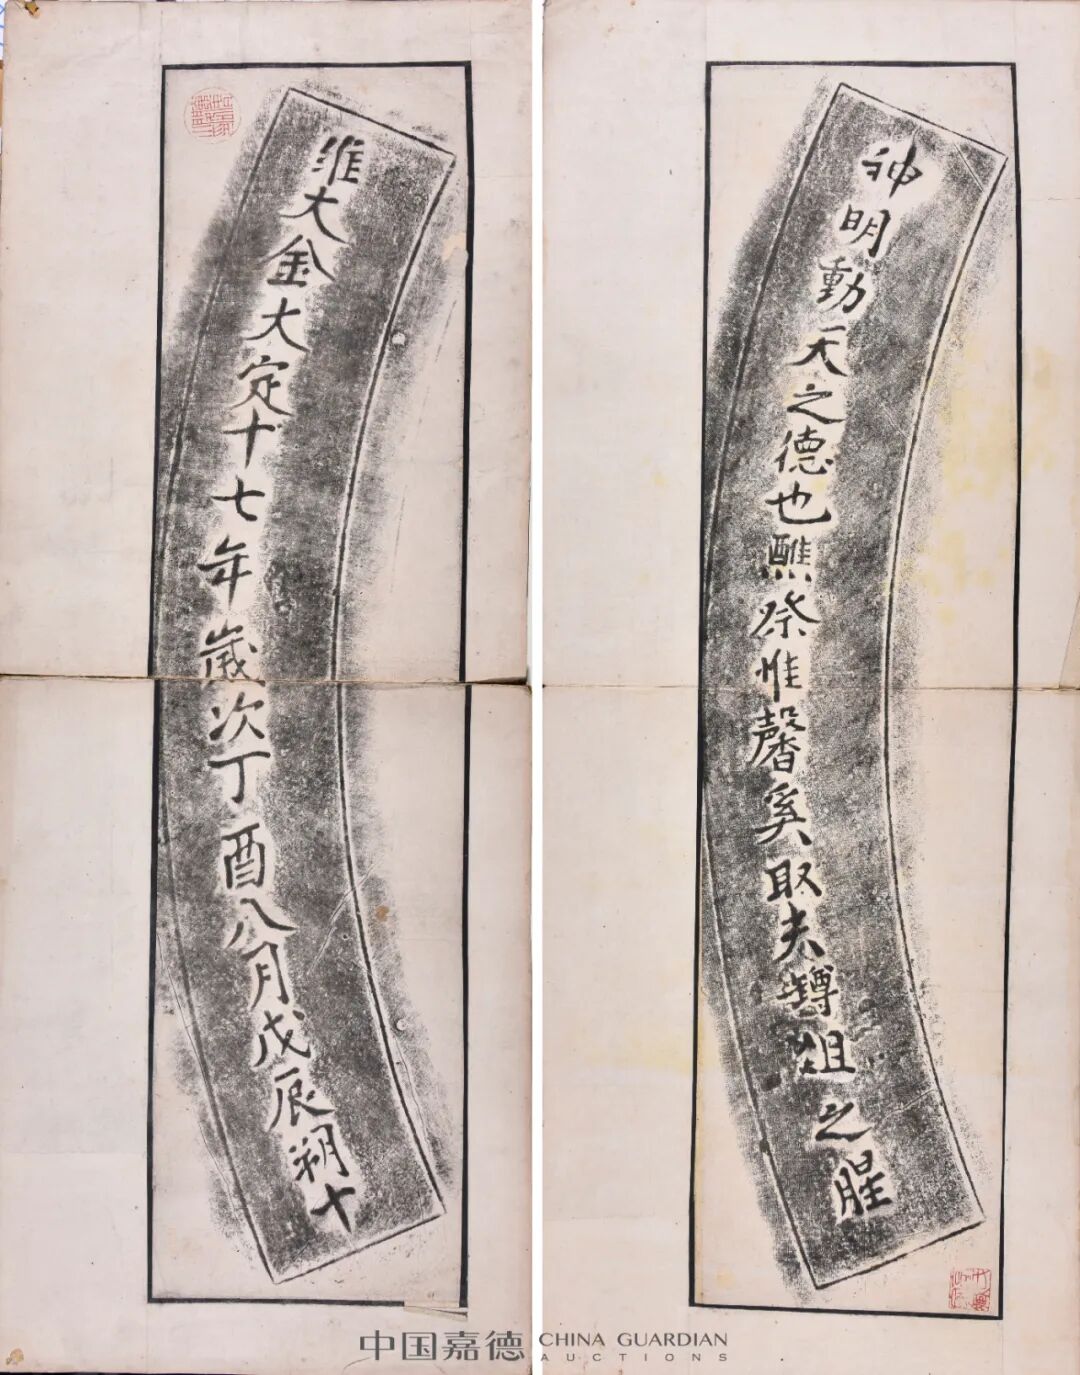 維大金大定十七年歲次丁酉八月戊辰朔十
神明動天之德也醮祭惟馨奚取夫罇俎之腥
中国嘉德 CHINA GUARDIAN
AUCTIONS